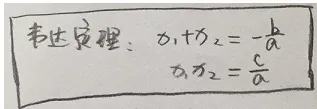 韦达定理: x₁+x₂ = -b/a
x₁x₂ = c/a